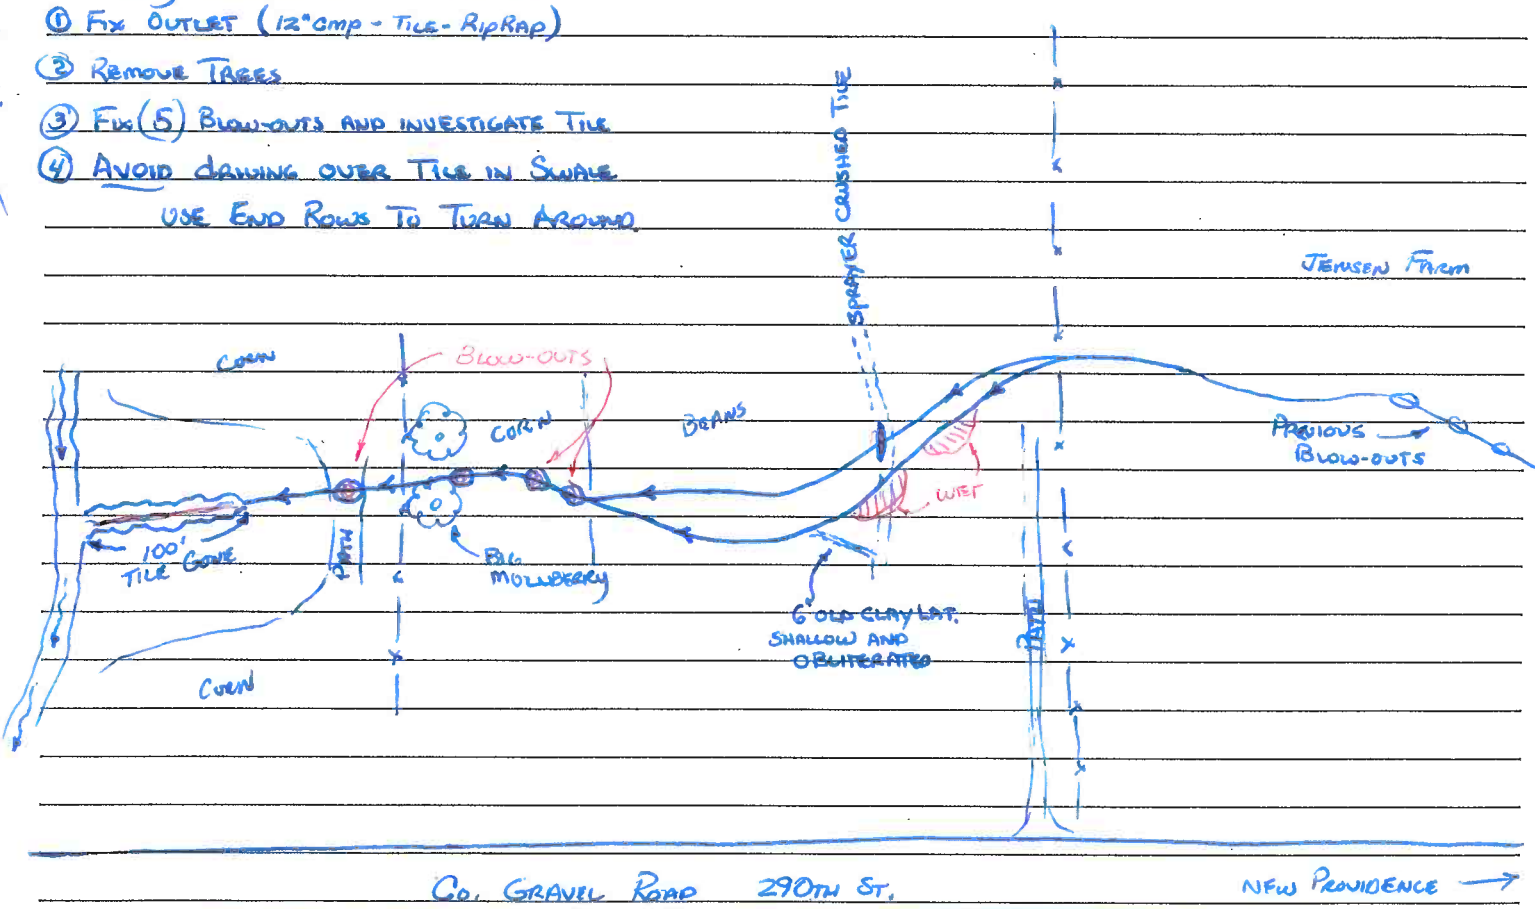 ① FIX OUTLET (12" CMP - TILE - RIPRAP)
② REMOVE TREES
③ FIX (5) BLOW-OUTS AND INVESTIGATE TILE
④ AVOID DRIVING OVER TILE IN SWALE
USE END ROWS TO TURN AROUND.
SPRAYER CRUSHED TILE
JENSEN FARM
CORN
BLOW-OUTS
CORN
BEANS
PREVIOUS
BLOW-OUTS
WET
100'
TILE GONE
PATH
BIG
MULLBERRY
6" OLD CLAY LAT.
SHALLOW AND
OBLITERATED
PATH
CORN
CO. GRAVEL ROAD 290TH ST.
NEW PROVIDENCE